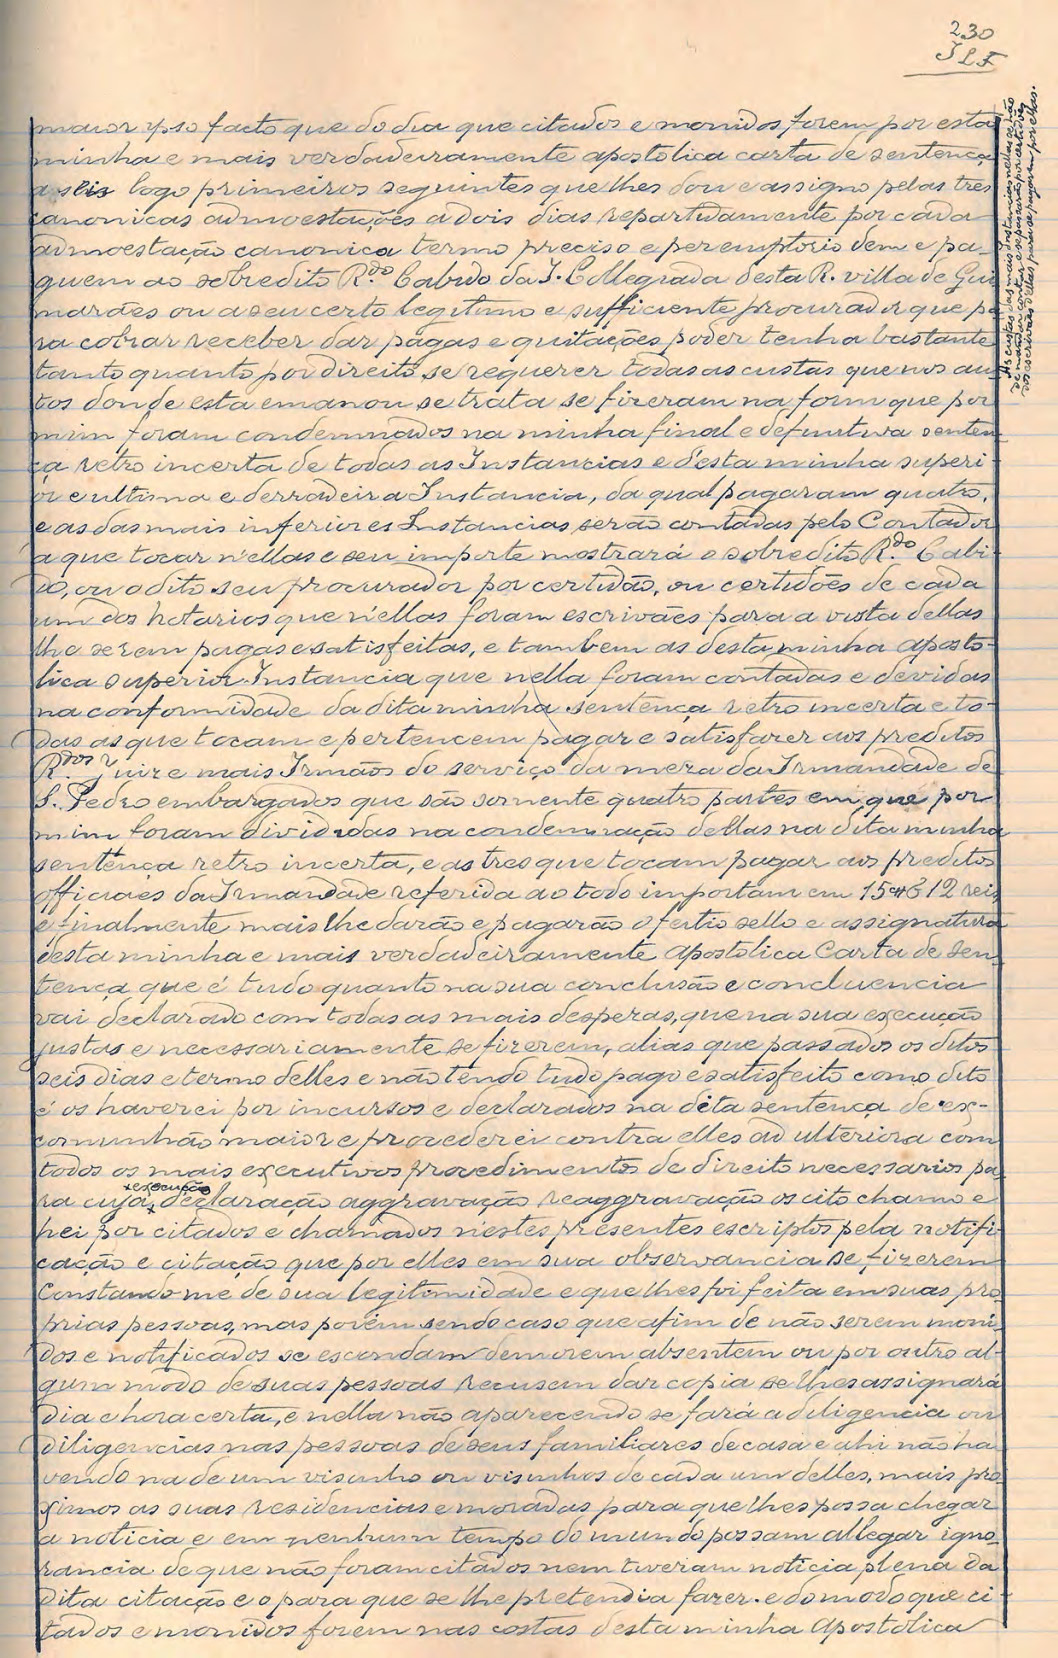 230
JLF
maior ypso facto que do dia que citados e monidos forem por esta
minha e mais verdadeiramente apostolica carta de sentença
a seis logo primeiros seguintes que lhes dou e assigno pelas tres
canonicas admoestações a dois dias repartidamente por cada
admoestação canonica termo preciso e peremptorio dem e pa-
guem ao sobredito R.do Cabido da I. Collegiada desta R. villa de Gui
marães ou a seu certo legitimo e sufficiente procurador que pa
ra cobrar receber dar pagas e quitações poder tenha bastante
tanto quanto por direito se requerer todas as custas que nos au-
tos donde esta emanou se trata se fizeram na form que por
mim foram condemnados na minha final e defenitiva senten
ça retro incerta de todas as Instancias e desta minha superi-
or e ultima e derradeira Instancia, da qual pagaram quatro,
e as das mais inferiores Instancias serão contadas pelo Contador
a que tocar n'ellas e seu importe mostrará o sobredito R.do Cabi-
do, ou o dito seu procurador por certidão, ou certidões de cada
um dos notarios que n'ellas foram escrivães para a vista dellas
lhe serem pagas e satisfeitas, e tambem as desta minha aposto-
lica superior Instancia que nella foram contadas e devidas
na conformidade da dita minha sentença retro incerta e to-
das as que tocam e pertencem pagar e satisfazer aos preditos
R.dos Juiz e mais Irmãos do serviço da meza da Irmandade de
S. Pedro embargados que são somente quatro partes em que por
mim foram divididas na condemnação dellas na dita minha
sentença retro incerta, e as tres que tocam pagar aos preditos
officiaes da Irmandade referida ao todo importam em 15$612 reis
e finalmente mais lhe darão e pagarão o feitio sello e assignatura
desta minha e mais verdadeiramente apostolica Carta de Sen-
tença que é tudo quanto na sua conclusão e concluencia
vai declarado com todas as mais desperas, que na sua execução
justas e necessariamente se fizerem, alias que passados os ditos
seis dias e termo delles e não tendo tudo pago e satisfeito como dito
é os haverei por incursos e declarados na dita sentença de ex-
comunhão maior e procederei contra elles ad ulteriora com
todos os mais executivos procedimentos de direito necessarios pa
ra cuja x execução x declaração aggravação reaggravação os cito chamo e
hei por citados e chamados n'estes presentes escriptos pela notifi-
cação e citação que por elles em sua observancia se fizerem
Constando-me de sua legitimidade e que lhes foi feita em suas pro
prias pessoas, mas porém sendo caso que afim de não serem moni
dos e notificados se escondam demorem absentem ou por outro al-
gum modo de suas pessoas recusem dar copia se lhes assignará
dia e hora certa, e nella não aparecendo se fará a diligencia ou
diligencias nas pessoas de seus familiares de casa e ahi não ha
vendo na de um visinho ou visinhos de cada um delles, mais pro-
ximos as suas residencias e moradas para que lhes possa chegar
a noticia e em nenhum tempo do mundo possam allegar igno-
rancia de que não foram citados nem tiveram noticia plena da
dita citação e o para que se lhe pretendia fazer. e do modo que ci-
tados e monidos forem nas costas desta minha Apostolica